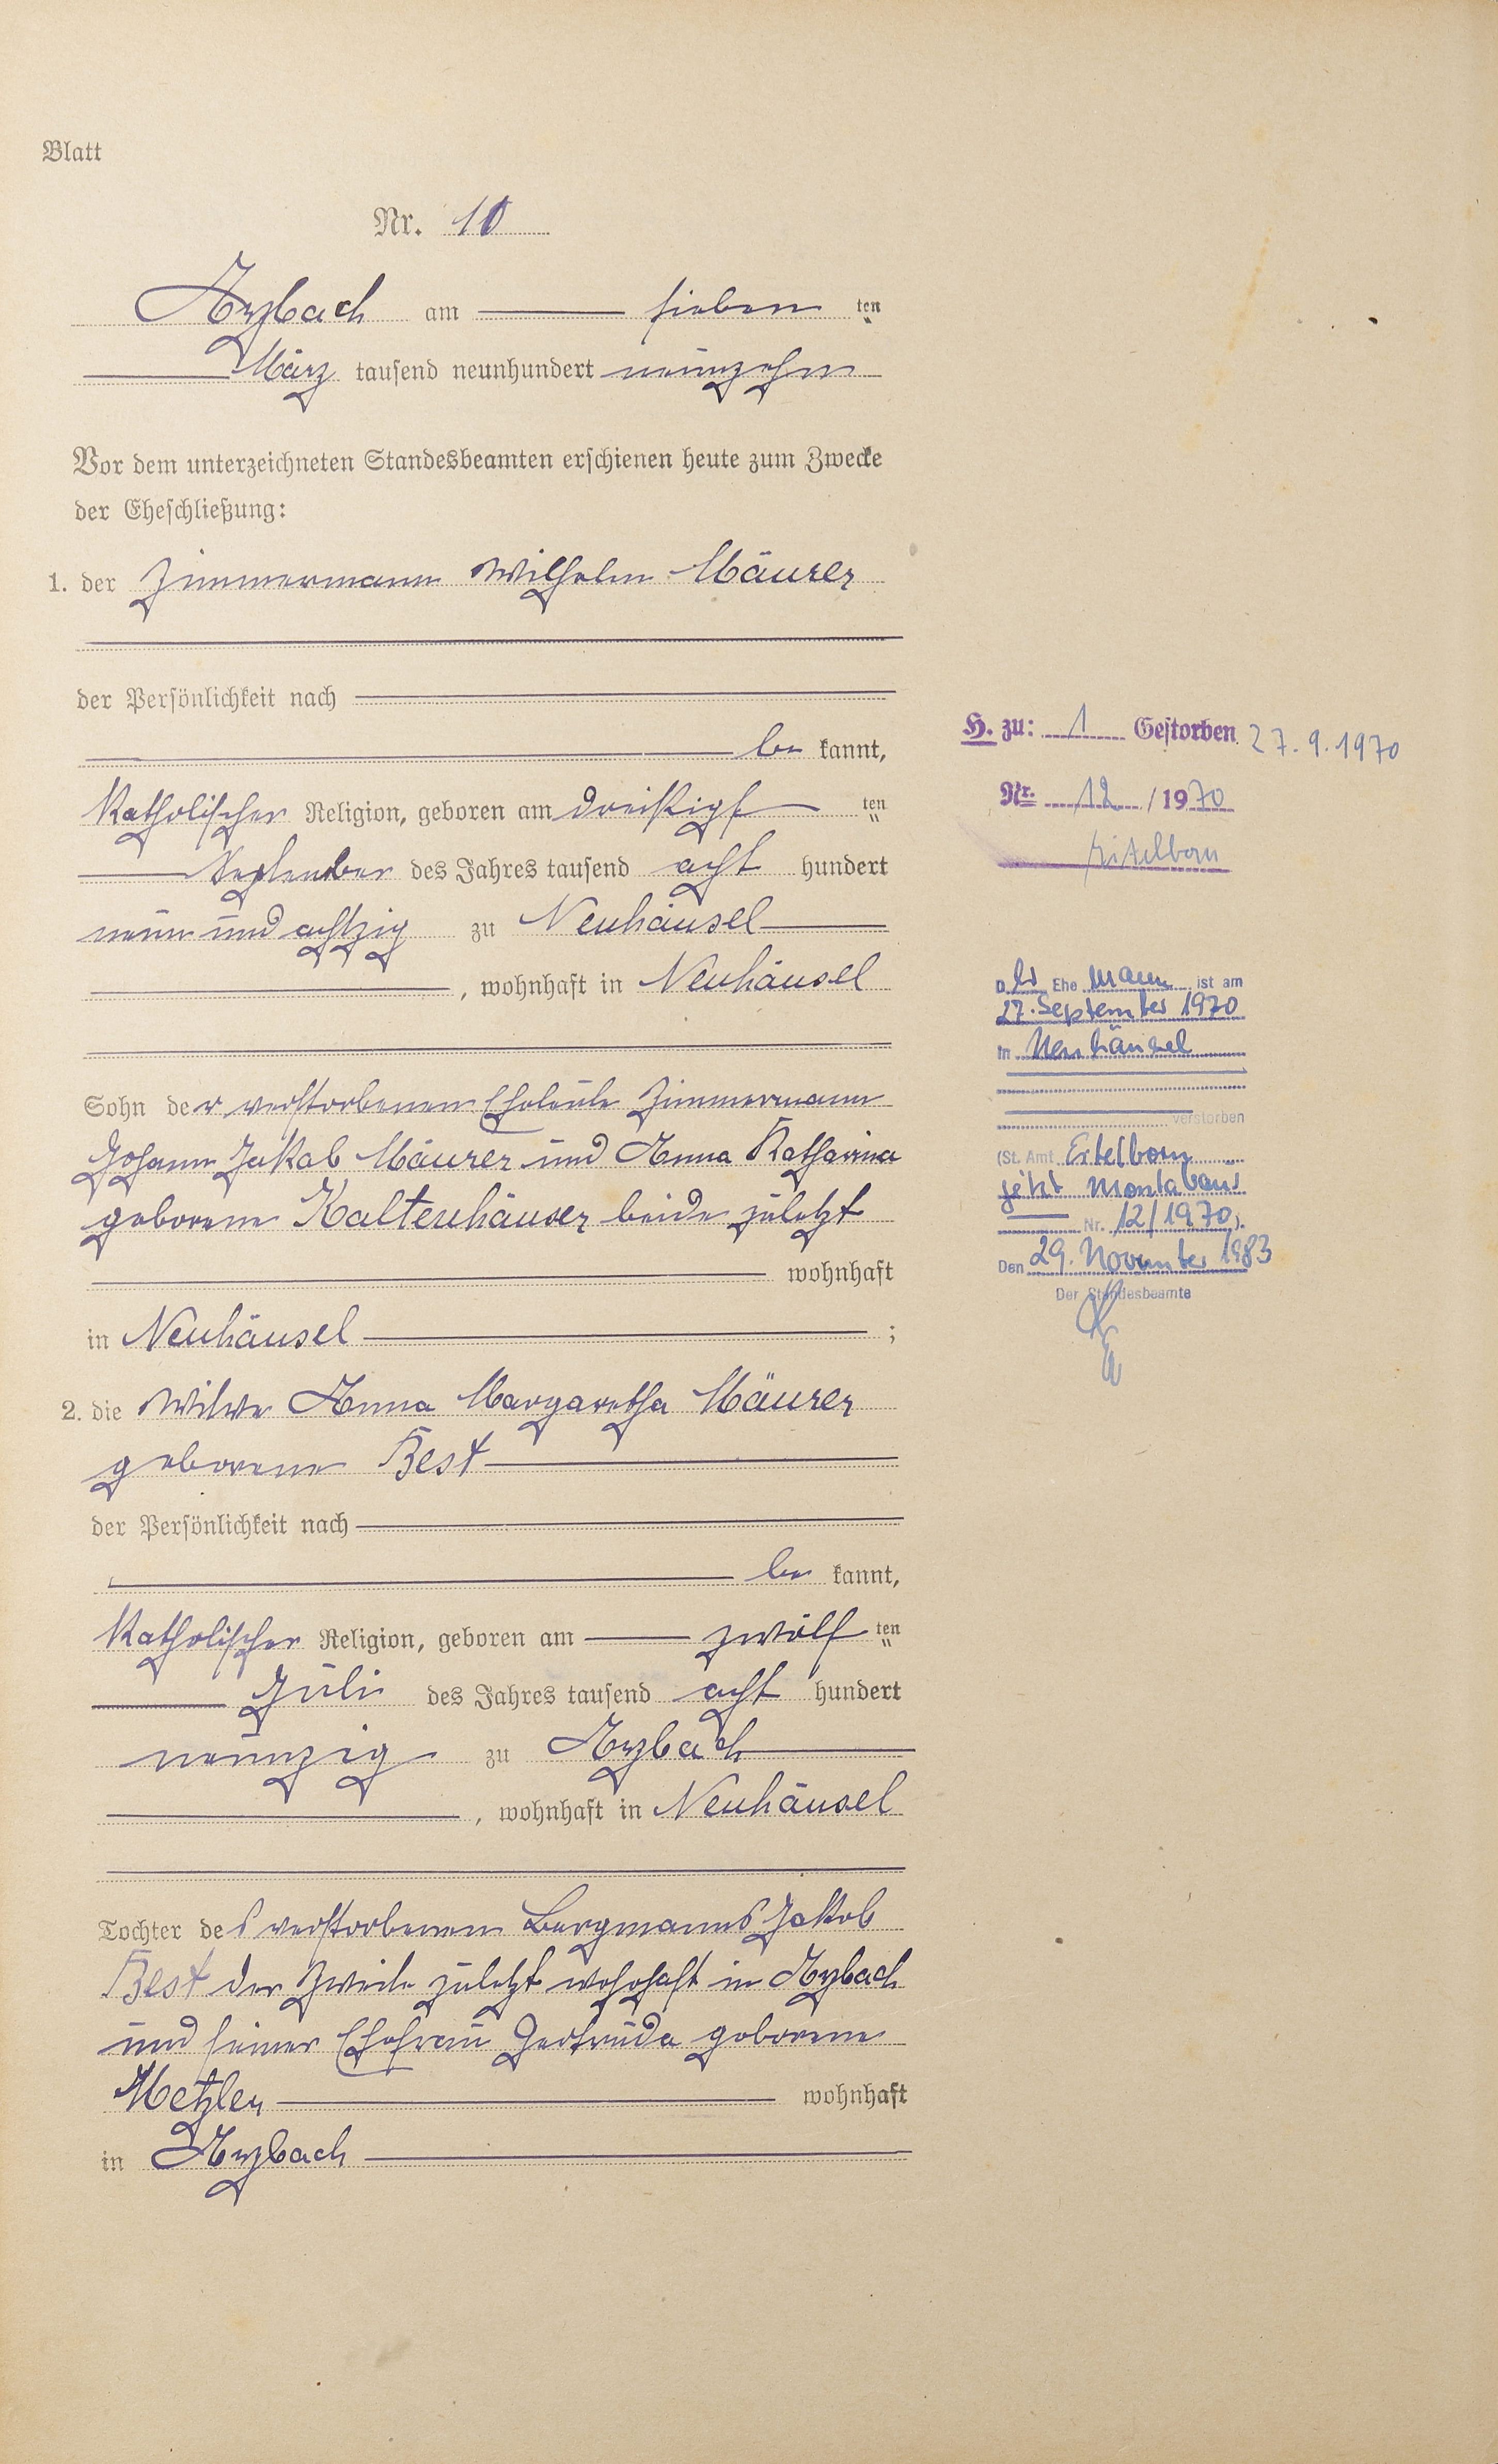 Blatt
Nr. 10
Arzbach am sieben ten
März tausend neunhundert neunzehn
Vor dem unterzeichneten Standesbeamten erschienen heute zum Zwecke
der Eheschließung:
1. der Zimmermann Wilhelm Mäurer
der Persönlichkeit nach
be kannt,
katholischer Religion, geboren am dreißigs ten
September des Jahres tausend acht hundert
neun und achtzig zu Neuhäusel
, wohnhaft in Neuhäusel
Sohn der verstorbenen Eheleute Zimmermann
Johann Jakob Mäurer und Anna Katharina
geborene Kaltenhäuser beide zuletzt
wohnhaft
in Neuhäusel ;
2. die Witwe Anna Margaretha Mäurer
geborene Best
der Persönlichkeit nach
be kannt,
katholischer Religion, geboren am zwölf ten
Juli des Jahres tausend acht hundert
neunzig zu Arzbach
, wohnhaft in Neuhäusel
Tochter des verstorbenen Bergmanns Jakob
Best der Zweite zuletzt wohnhaft in Arzbach
und seiner Ehefrau Gertruda geborene
Metzler wohnhaft
in Arzbach
H. zu: 1 Gestorben 27.9.1970
Nr. 12 / 1970
Eitelborn
Der Ehe mann ist am
27. September 1970
in Neuhäusel
verstorben
(St. Amt Eitelborn
jetzt Montabaur
Nr. 12/1970).
Den 29. November 1983
Der Standesbeamte